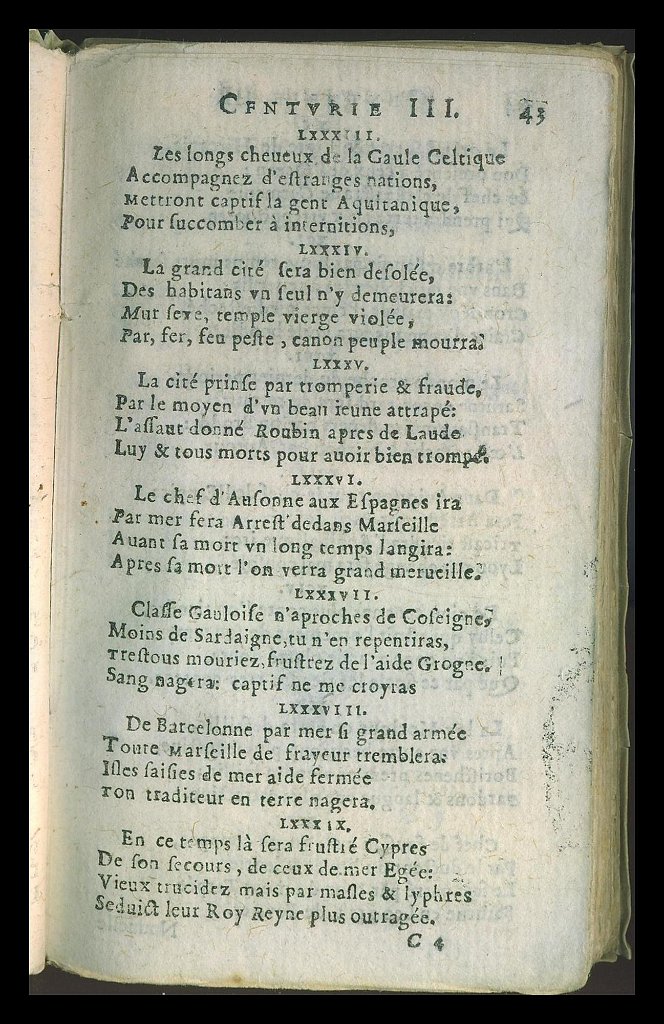 CENTVRIE III. 43
LXXXIII.
Les longs cheueux de la Gaule Celtique
Accompagnez d'eſtranges nations,
Mettront captif la gent Aquitanique,
Pour ſuccomber à internitions,
LXXXIV.
La grand cité ſera bien deſolée,
Des habitans vn ſeul n'y demeurera:
Mur ſexe, temple vierge violée,
Par, fer, feu peſte, canon peuple mourra.
LXXXV.
La cité prinſe par tromperie & fraude,
Par le moyen d'vn beau ieune attrapé:
L'aſſaut donné Roubin apres de Laude
Luy & tous morts pour auoir bien trompé.
LXXXVI.
Le chef d'Auſonne aux Eſpagnes ira
Par mer fera Arreſt dedans Marſeille
Auant ſa mort vn long temps langira:
Apres ſa mort l'on verra grand merueille.
LXXXVII.
Claſſe Gauloiſe n'aproches de Coſeigne,
Moins de Sardaigne, tu n'en repentiras,
Treſtous mouriez, fruſtrez de l'aide Grogne.
Sang nagera: captif ne me croyras
LXXXVIII.
De Barcelonne par mer ſi grand armée
Toute Marſeille de frayeur tremblera:
Iſles ſaiſies de mer aide fermée
Ton traditeur en terre nagera.
LXXXIX.
En ce temps là ſera fruſtré Cypres
De ſon ſecours, de ceux de mer Egée:
Vieux trucidez mais par maſles & lyphres
Seduict leur Roy Reyne plus outragée.
C 4